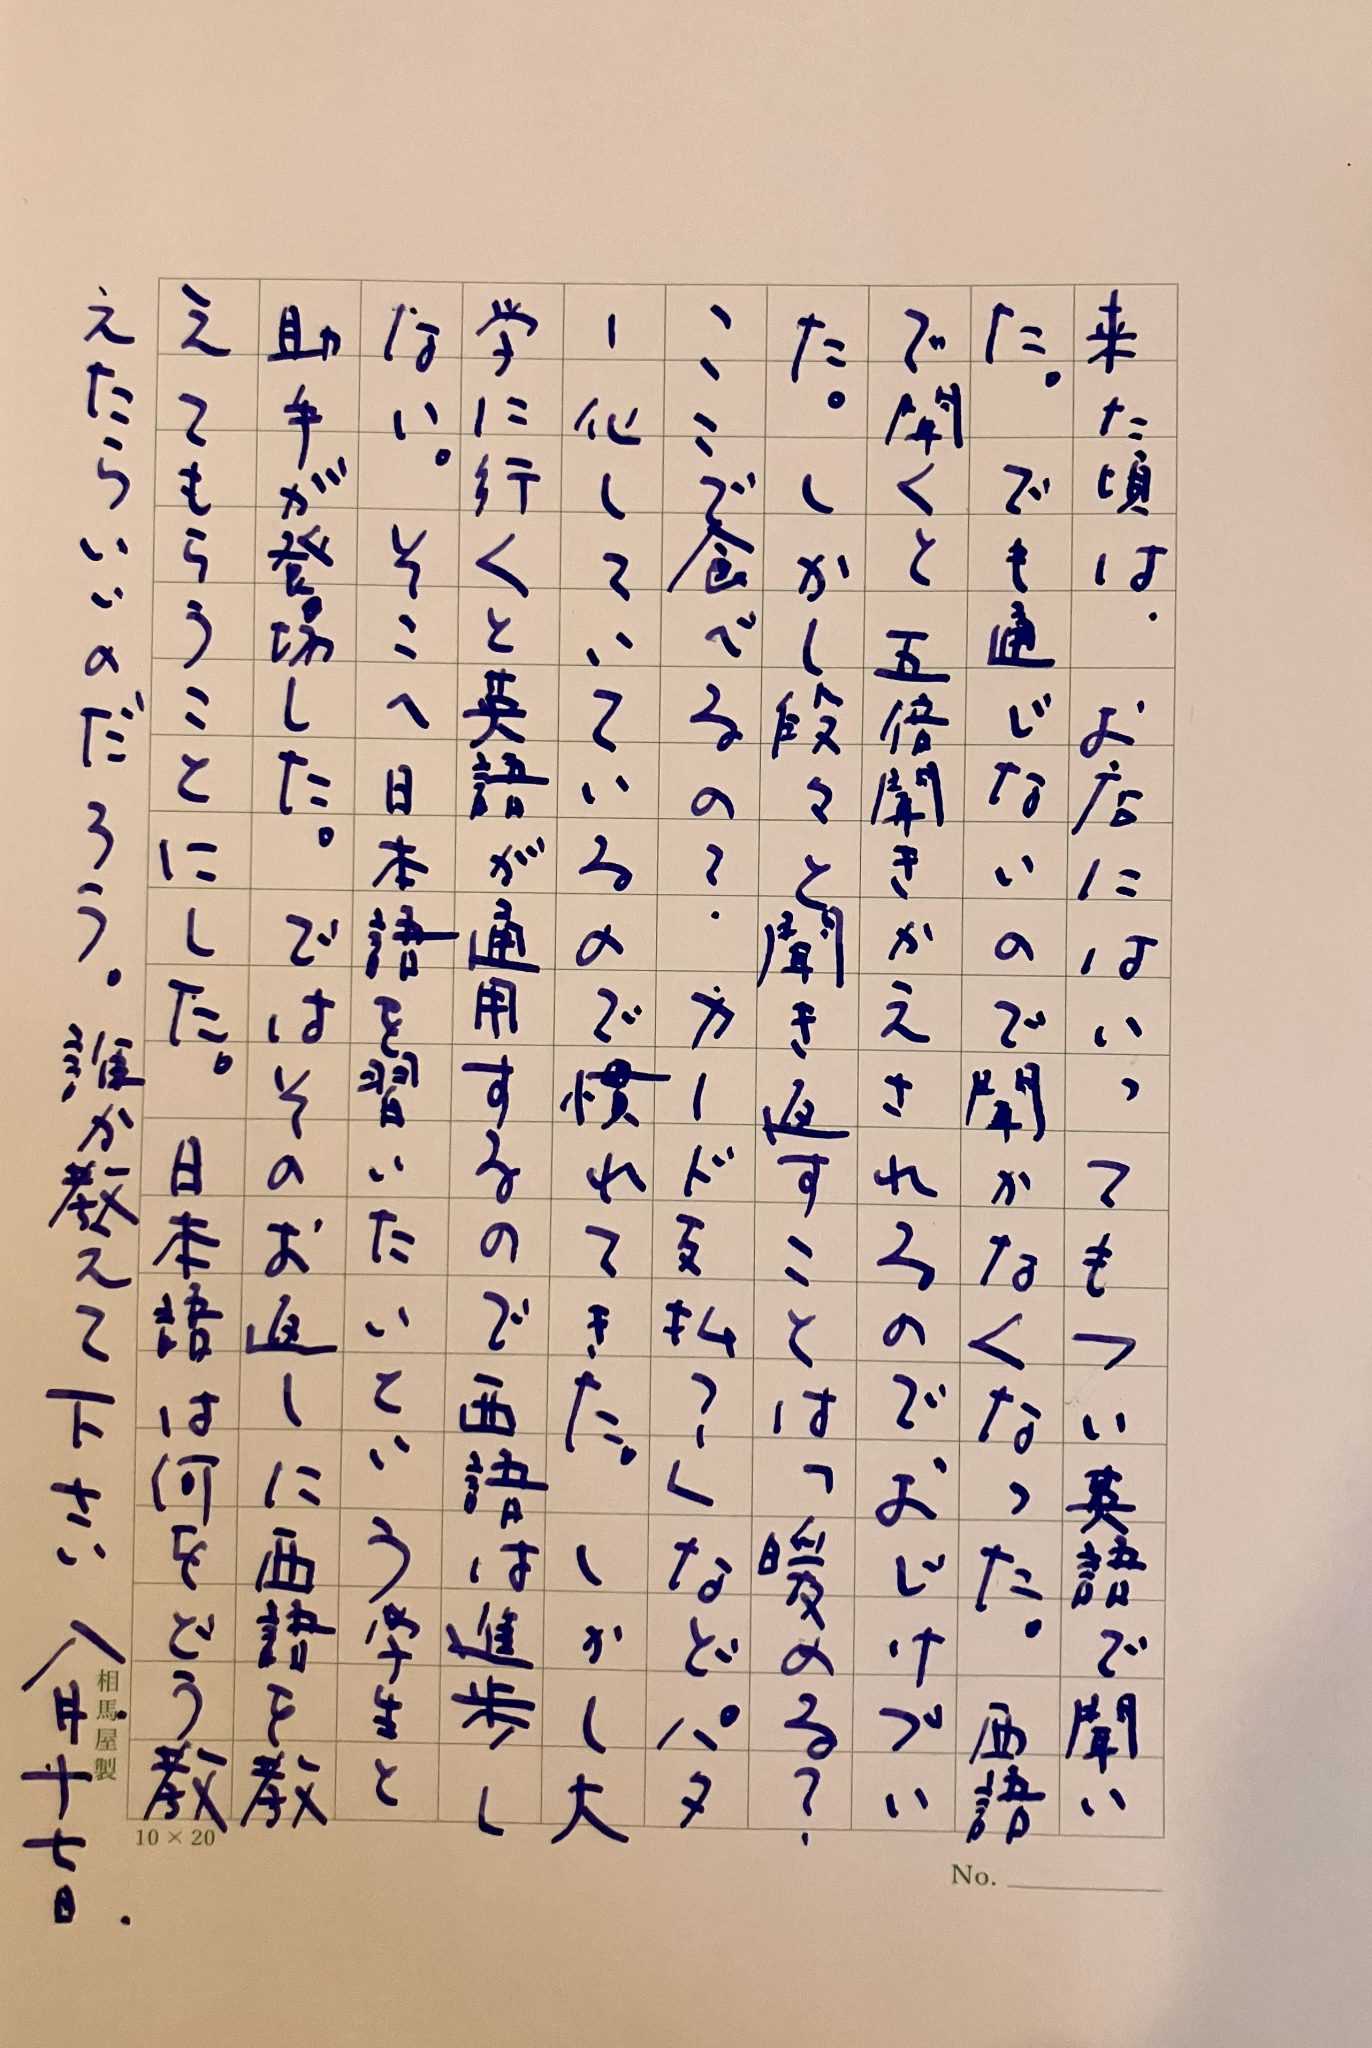 来た頃は、お店にはいってもつい英語で聞い
た。でも通じないので聞かなくなった。西語
で聞くと五倍聞きかえされるのでおじけづい
た。しかし段々と聞き返すことは「暖める？、
ここで食べるの？、カード支払？」などパタ
ー化しているので慣れてきた。しかし大
学に行くと英語が通用するので西語は進歩し
ない。そこへ日本語を習いたいという学生と
助手が登場した。ではそのお返しに西語を教
えてもらうことにした。日本語は何をどう教
えたらいいのだろう。誰か教えて下さい 八月十七日.
相馬屋製
10×20
No.